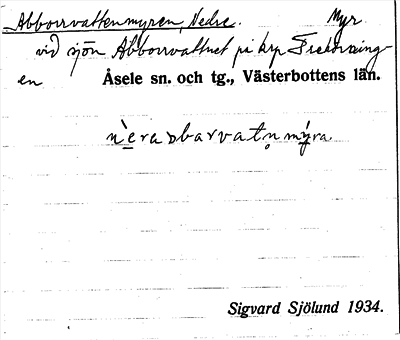 Abborrvattenmyren, Nedre. Myr
vid sjön Abborrvattnet på krp
en Åsele sn. och tg., Västerbottens län.
nèra abarvatn̥ mýra
Sigvard Sjölund 1934.